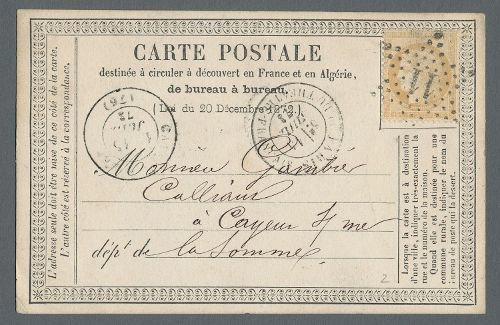 CARTE POSTALE
destinée à circuler à découvert en France et en Algérie,
de bureau à bureau.
(Loi du 20 Décembre 1872.)
L'adresse seule doit être mise de ce côté de la carte.
L'autre côté est réservé à la correspondance.
(76)
73
11
Monsieur
à Cayeux s/ mer
dépt de la Somme
Lorsque la carte est à destination
d'une ville, indiquer très-exactement la
rue et le numéro de la maison.
Quand elle est destinée pour une
commune rurale, indiquer le nom du
bureau de poste qui la dessert.
2